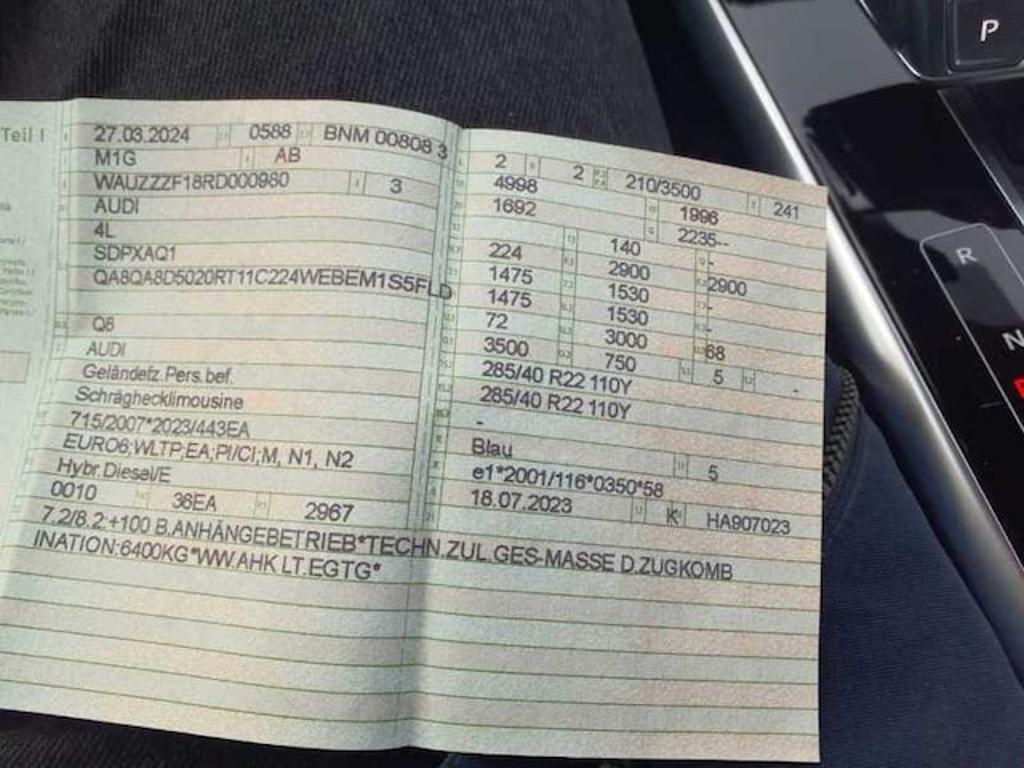 Teil I
27.03.2024 0588 BNM 00808 3
M1G AB
WAUZZZF18RD000980 3
AUDI
4L
SDPXAQ1
QA8QA8D5020RT11C224WEBEM1S5FLD
Q8
AUDI
Geländefz.Pers.bef.
Schräghecklimousine
715/2007*2023/443EA
EURO6;WLTP;EA;PI/CI;M, N1, N2
Hybr.Diesel/E
0010 36EA 2967
2 2 210/3500 241
4998 1996
1692 2235--
224 140 -
1475 2900 2900
1475 1530 -
72 1530 -
3500 3000 68
285/40 R22 110Y 750 5 -
285/40 R22 110Y
-
Blau 5
e1*2001/116*0350*58
18.07.2023 K HA907023
7.2/8.2:+100 B.ANHÄNGEBETRIEB*TECHN.ZUL.GES-MASSE D.ZUGKOMB
INATION:6400KG*WW.AHK LT.EGTG*
P
R
N